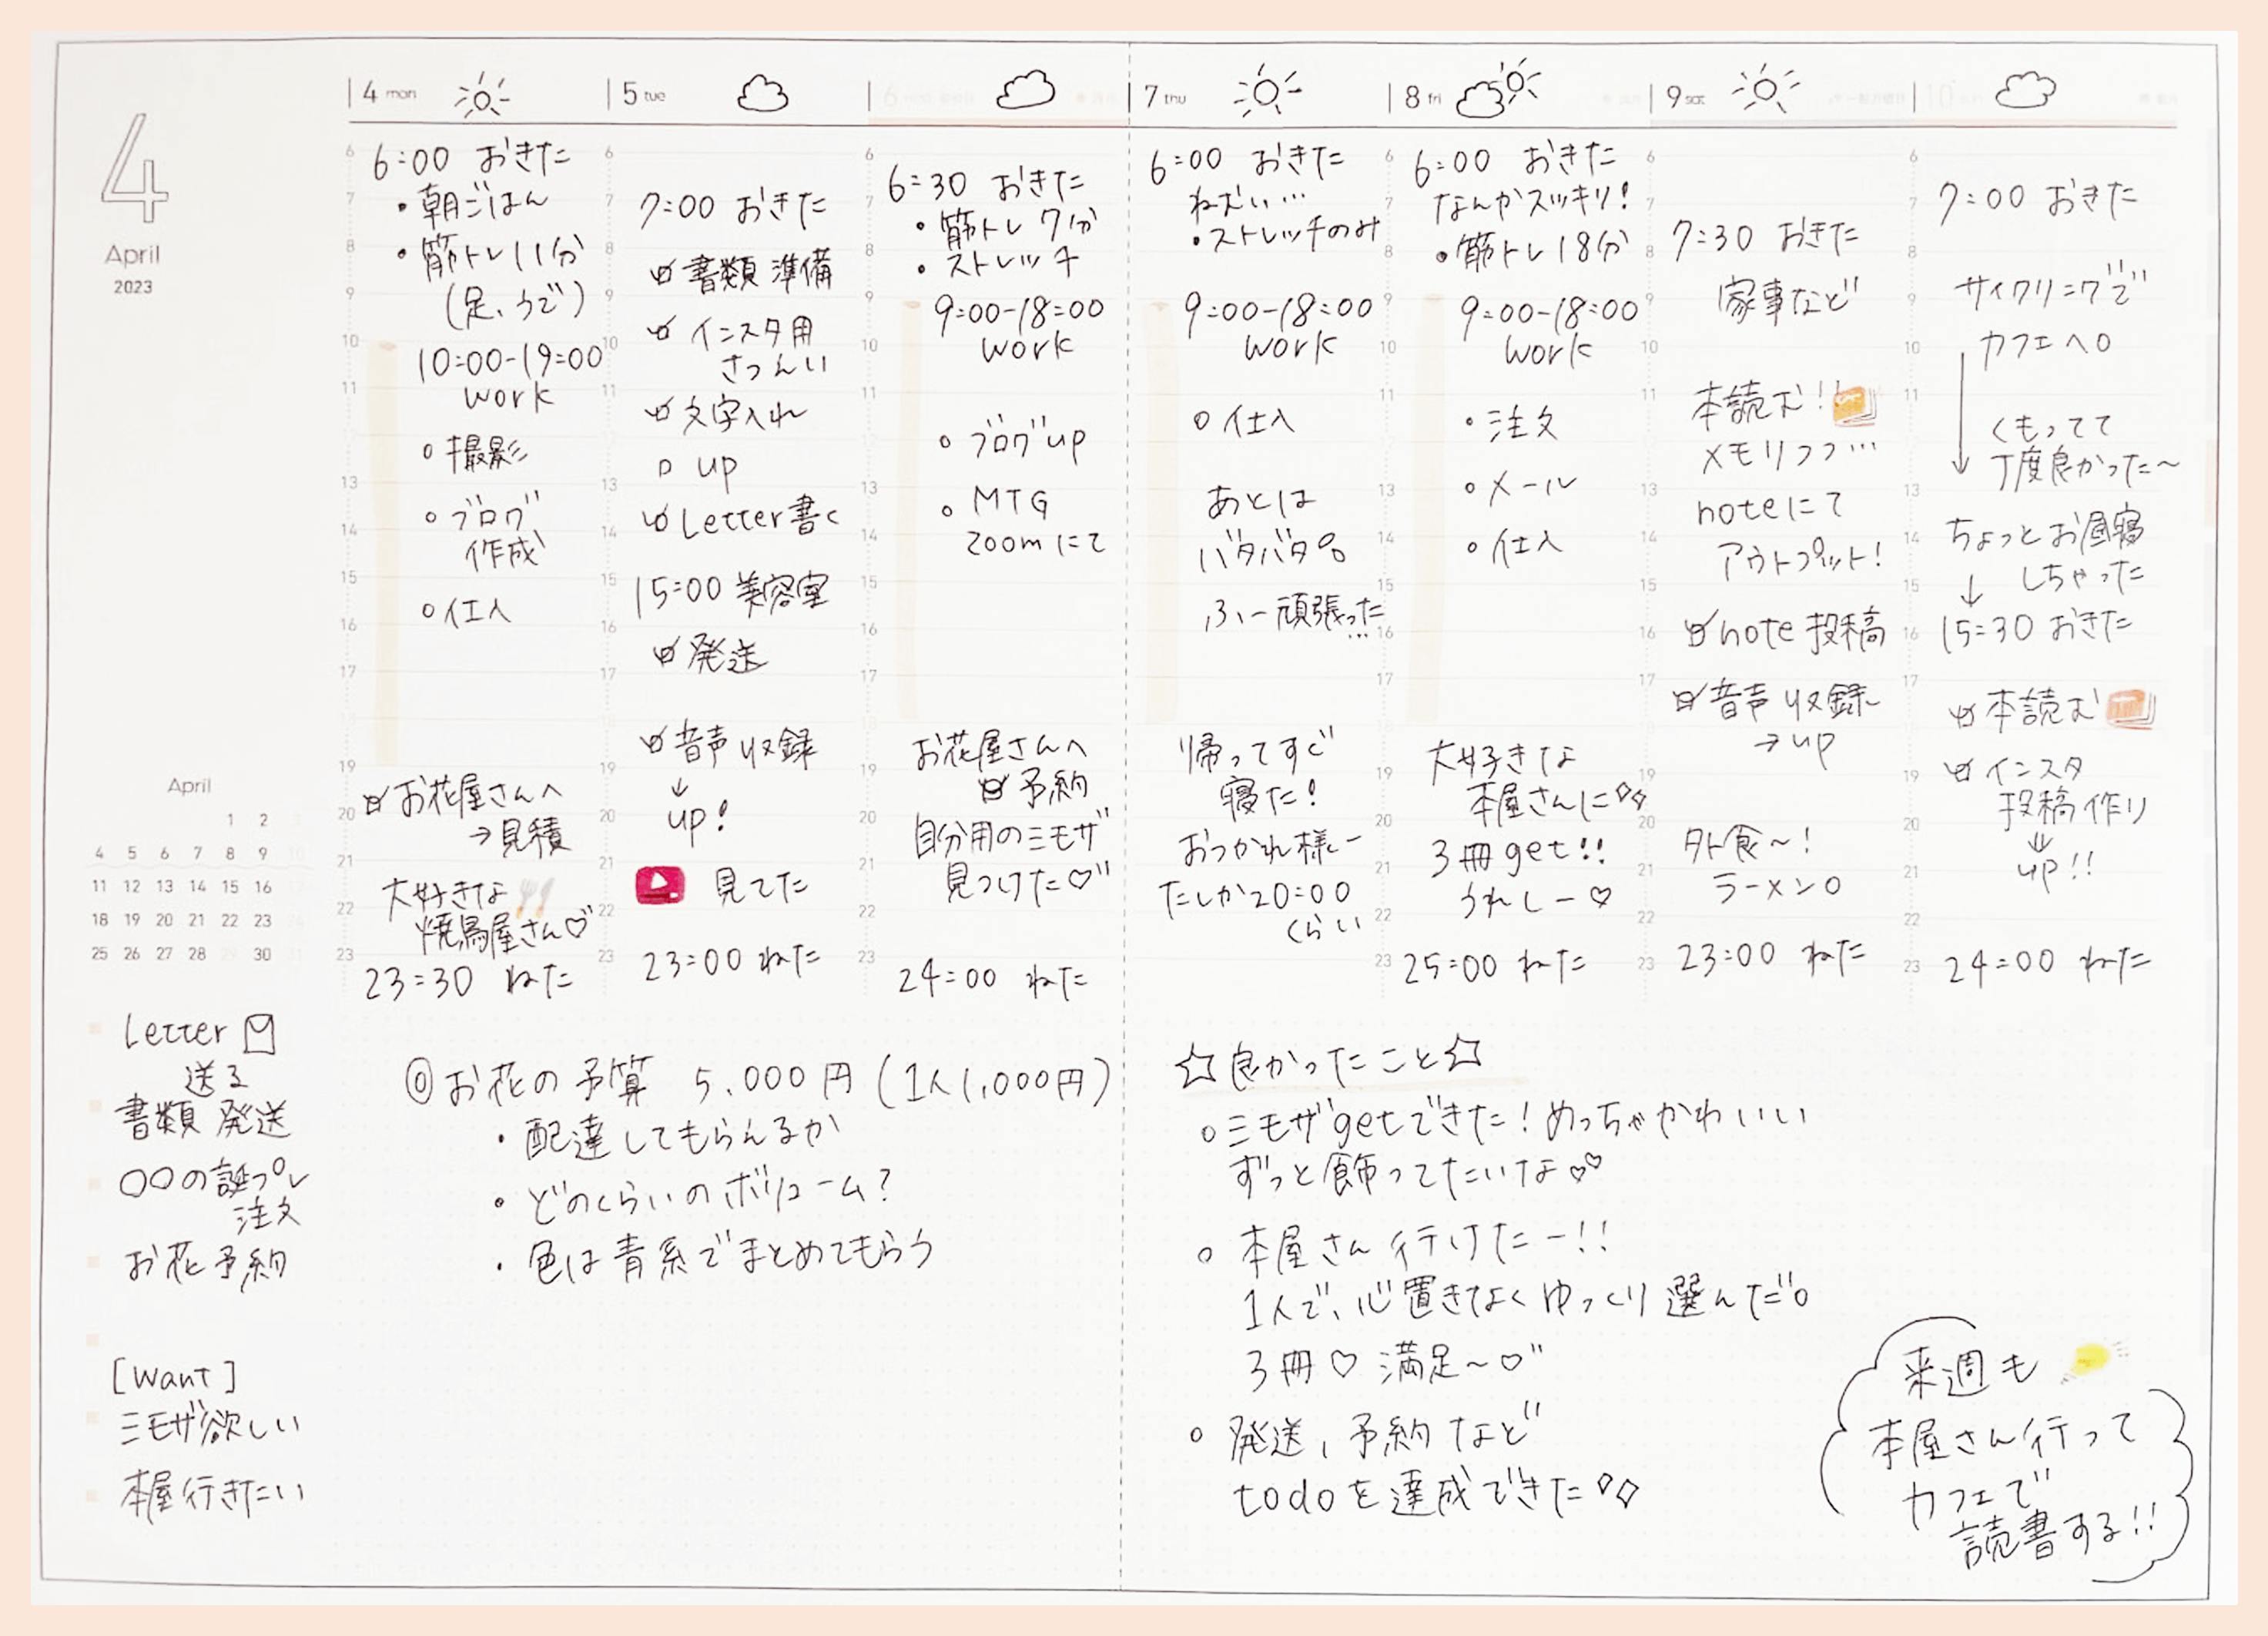 4
April
2023
April
1 2
4 5 6 7 8 9 10
11 12 13 14 15 16
18 19 20 21 22 23
25 26 27 28 29 30 31
Letter
送る
書類 発送
〇〇の誕プレ
注文
お花予約
[Want]
ミモザ欲しい
本屋行きたい
4 mon
6
7
8
9
10
11
13
14
15
16
17
19
20
21
22
23
6:00 おきた
・朝ごはん
・筋トレ11分
(足、うで)
10:00-19:00
work
○撮影
○ブログ
作成
○仕入
☑お花屋さんへ
→見積
大好きな
焼鳥屋さん♡
23:30 ねた
5 tue
6
7
8
9
10
11
13
14
15
16
17
19
20
21
22
23
7:00 おきた
☑書類準備
☑インスタ用
さつえい
☑文字入れ
□ up
☑Letter書く
15:00 美容室
☑発送
☑音声収録
↓
up!
見てた
23:00 ねた
6
6
7
8
9
10
11
13
14
15
16
17
19
20
21
22
23
6:30 おきた
・筋トレ 7分
・ストレッチ
9:00-18:00
work
○ブログup
○MTG
zoomにて
お花屋さんへ
☑予約
自分用のミモザ
見つけた♡"
24:00 ねた
7 thu
6:00 おきた
ねむい…
・ストレッチのみ
9:00-18:00
work
○仕入
あとは
バタバタ。
ふー頑張った…
帰ってすぐ
寝た!
おつかれ様ー
たしか20:00
くらい
8 fri
6
7
8
9
10
13
14
15
16
17
19
20
21
22
23
6:00 おきた
なんかスッキリ!
・筋トレ18分
9:00-18:00
work
○注文
○メール
○仕入
大好きな
本屋さんに
3冊get!!
うれしー♡
25:00 ねた
9 sat
6
7
8
9
10
11
13
14
15
16
17
19
20
21
22
23
7:30 おきた
家事など
本読む!!
メモりつつ…
noteにて
アウトプット!
☑note投稿
☑音声収録
→up
外食〜!
ラーメン。
23:00 ねた
10
6
7
8
9
10
11
13
14
15
16
17
19
20
21
22
23
7:00 おきた
サイクリングで
カフェへ。
くもってて
丁度良かった〜
ちょっとお昼寝
↓ しちゃった
15:30 おきた
☑本読む
☑インスタ
投稿作り
↓
up!!
24:00 ねた
◎お花の予算 5.000円(1人1,000円)
・配達してもらえるか
・どのくらいのボリューム?
・色は青系でまとめてもらう
☆良かったこと☆
○ミモザgetできた!めっちゃかわいい
ずっと飾ってたいな♡♡
○本屋さん行けたー!!
1人で、心置きなくゆっくり選んだ。
3冊♡満足〜♡"
○発送、予約など
todoを達成できた
来週も
本屋さん行って
カフェで
読書する!!